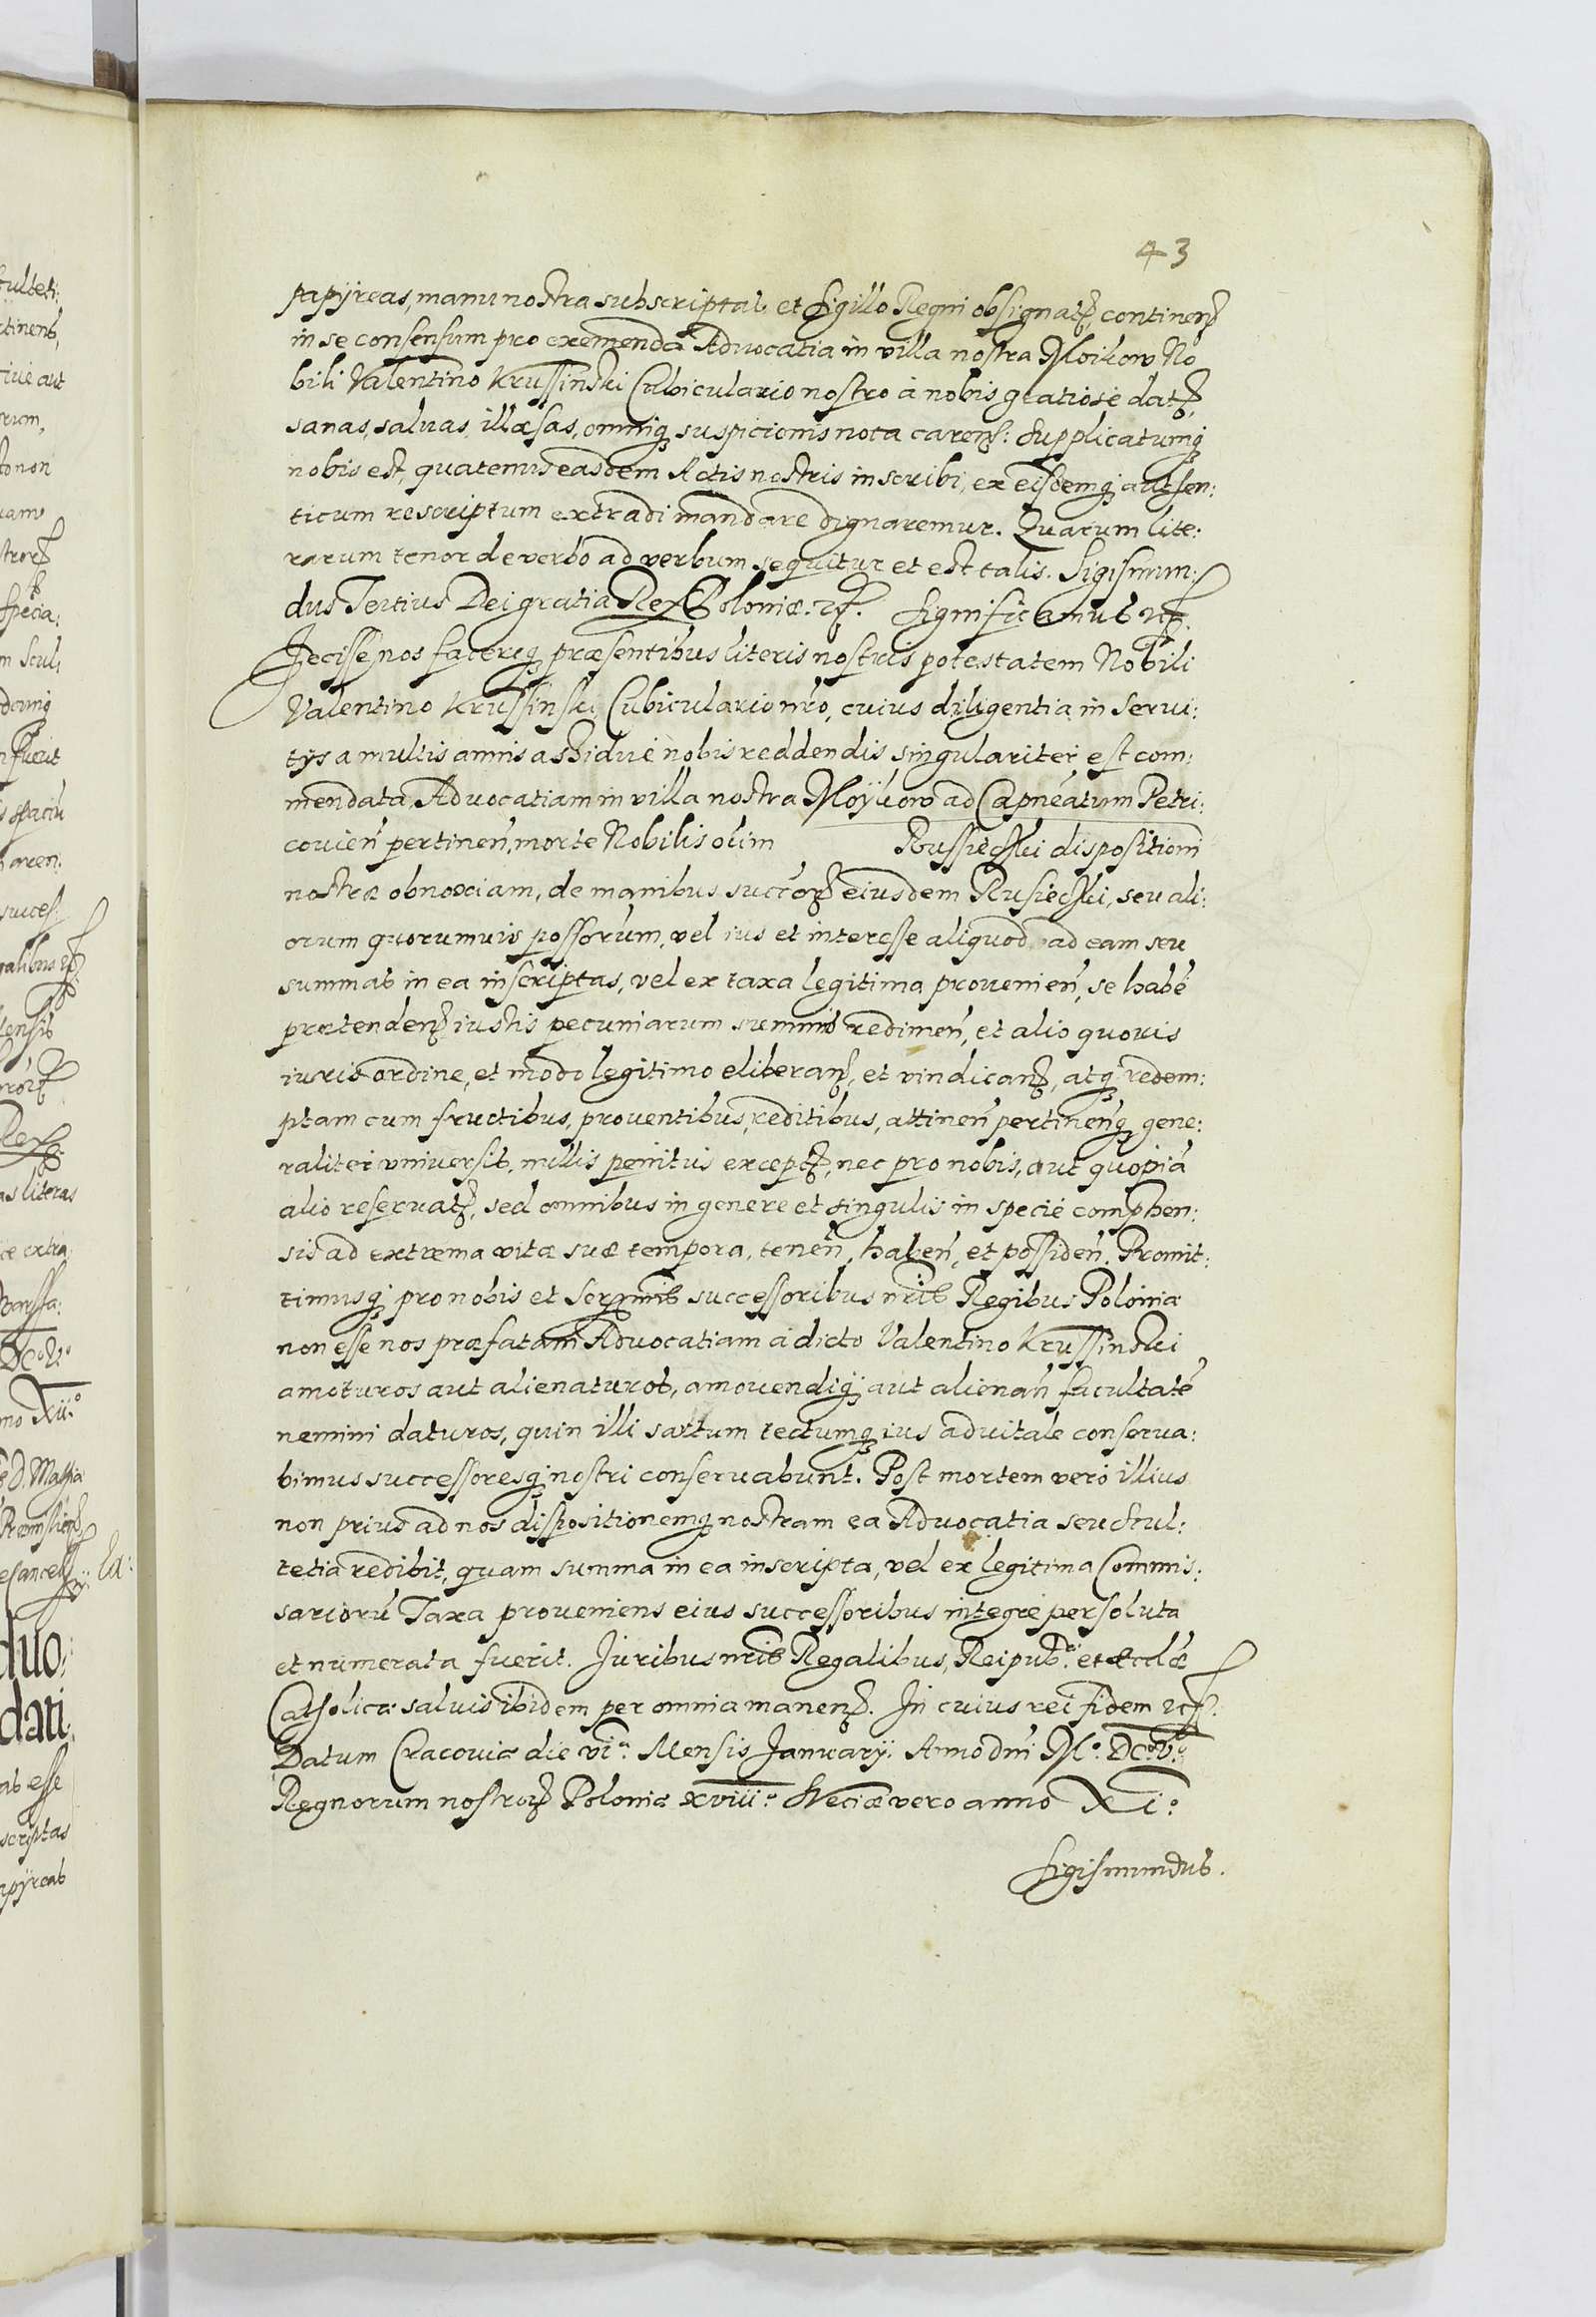 43
papÿreas, manu nostra subscriptas et Sigillo Regni obsignatꝝ, continenꝝ
in se consensum pro exemenda Advocatia in villa nostra Moikow No
bili Valentino Krussinski Cubiculario nostro à nobis gratiosè datꝝ,
sanas, saluas, illæsas, omniqꝫ suspicionis nota carenꝝ: Supplicatumqꝫ
nobis est, quatenus easdem Actis nostris inscribi, ex eisdemqꝫ authen:
ticum rescriptum extradi mandare dignaremur. Quarum lite:
rarum tenor de verbo ad verbum sequitur et est talis. Sigismun:
dus Tertius Dei gratia Rex Poloniæ. ꝛꝭ. Significamus ꝛꝭ.
Fecisse nos facereqꝫ præsentibus literis nostris potestatem Nobili
Valentino Krussinski Cubiculario nr̃o, cuius diligentia in serui:
tys a multis annis assiduè nobis reddendis singulariter est com:
mendata, Advocatiam in villa nostra Moÿkow ad Capneatum Petri:
couien̄ pertinen̄, morte Nobilis olim Russiecki dispositioni
nostræ obnoxiam, de manibus succorꝝ eiusdem Rusiecki, seu ali:
orum quorumuis possorum, vel ius et interesse aliquod ad eam seu
summas in ea inscriptas, vel ex taxa legitima prouenien̄, se habē
prætendenꝝ iustis pecuniarum summis redimen̄, et alio quouis
iuris ordine, et modo legitimo eliberanꝝ, et vindicanꝝ, atqꝫ redem:
ptam cum fructibus, prouentibus, reditibus, attinen̄ pertinen̄qꝫ gene:
raliter vniversis, nullis penitus exceptꝝ, nec pro nobis, aut quopiã
alio reseruatꝝ, sed omnibus in genere et singulis in specie comphen:
sis ad extrema vitæ suæ tempora, tenen̄, haben̄, et possiden̄. Promit:
timusqꝫ pro nobis et Serꝑmis successoribus nr̃is Regibus Poloniæ
non esse nos præfatam Advocatiam à dicto Valentino Krussinski
amoturos aut alienaturos, amouendiqꝫ aut alienan̄ facultatē
nemini daturos, quin illi sartum tectumqꝫ ius aduitale conserua:
bimus successoresqꝫ nostri conseruabunt. Post mortem verò illius
non prius ad nos dispositionemqꝫ nostram ea Advocatia seu Scul:
tetia redibit, quam summa in ea inscripta, vel ex legitima Commis:
sariorũ Taxa proueniens eius successoribus integrè persoluta
et numerata fuerit. Juribus nr̃is Regalibus, Reipub: et Eccl̃æ
Catholicæ saluis ibidem per omnia manenꝝ. In cuius rei fidem ꝛꝭ.
Datum Cracouiæ die viª. Mensis Januarÿ. Anno dni M.° DC.° V.°
Regnorum nostrorꝝ Poloniæ xviii.° Sveciæ vero anno XI.°
Sigismundus.